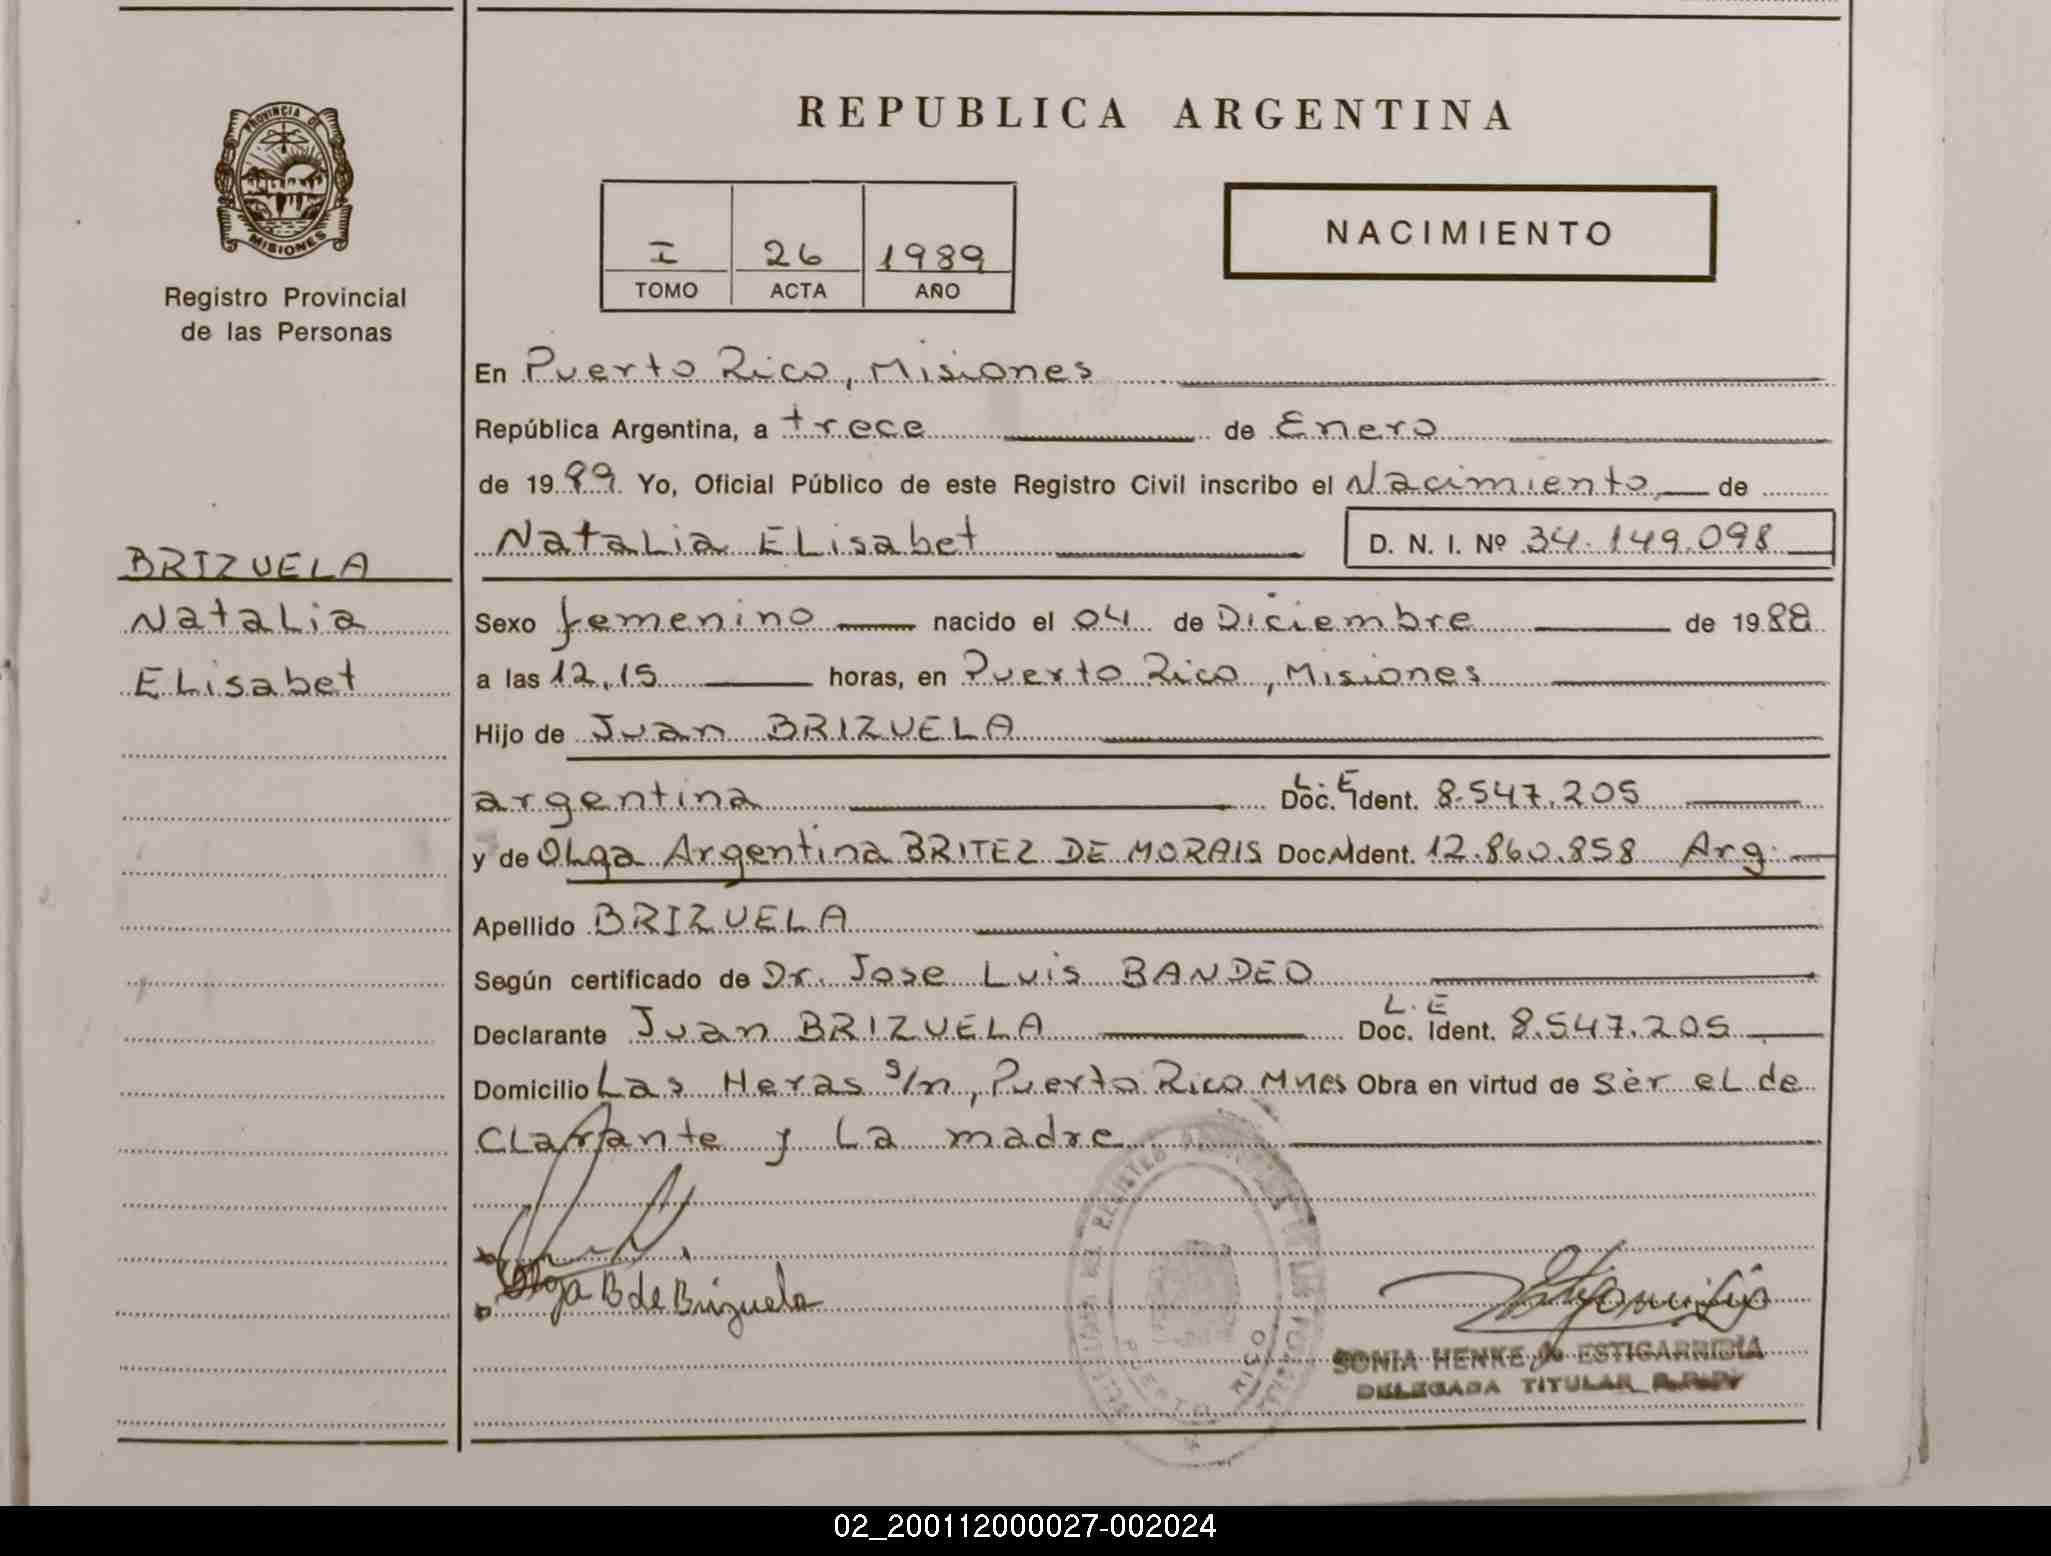 REPUBLICA ARGENTINA
PROVINCIA DE
MISIONES
Registro Provincial
de las Personas
I 26 1989
TOMO ACTA AÑO
NACIMIENTO
En Puerto Rico, Misiones
República Argentina, a trece de Enero
de 1989 Yo, Oficial Público de este Registro Civil inscribo el Nacimiento de
Natalia Elisabet D. N. I. Nº 34.149.098
BRIZUELA
Natalia
Elisabet
Sexo femenino nacido el 04 de Diciembre de 1988
a las 12,15 horas, en Puerto Rico, Misiones
Hijo de Juan BRIZUELA
argentina L.E Doc. Ident. 8.547.205
y de Olga Argentina BRITEZ DE MORAIS Doc. Ident. 12.860.858 Arg.
Apellido BRIZUELA
Según certificado de Dr. Jose Luis BANDEO
Declarante Juan BRIZUELA L.E Doc. Ident. 8.547.205
Domicilio Las Heras s/n, Puerto Rico Mnes Obra en virtud de sèr el de
clarante y la madre
Olga B de Brizuela
PUERTO RICO
SONIA HENKE de ESTIGARRIBIA
DELEGADA TITULAR R.P.P.
02_200112000027-002024